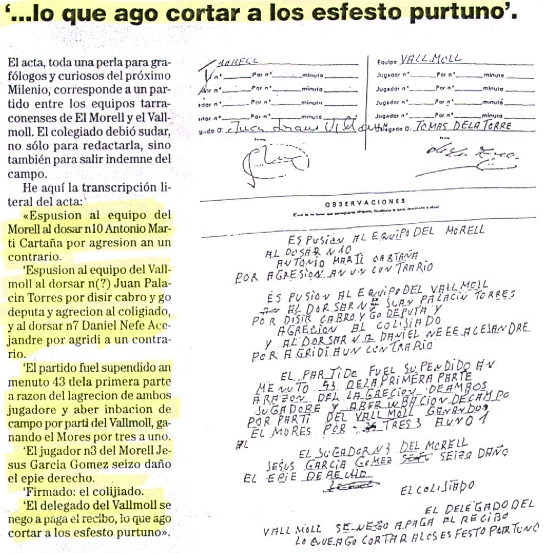 ‘...lo que ago cortar a los esfesto purtuno’.
El acta, toda una perla para gra-
fólogos y curiosos del próximo
Milenio, corresponde a un par-
tido entre los equipos tarra-
conenses de El Morell y el Vall-
moll. El colegiado debió sudar,
no sólo para redactarla, sino
también para salir indemne del
campo.
He aquí la transcripción li-
teral del acta:
«Espusion al equipo del
Morell al dosar n10 Antonio Mar-
ti Cartaña por agresion an un
contrario.
‘Espusion al equipo del Vall-
moll al dorsar n(?) Juan Pala-
cin Torres por disir cabro y go
deputa y agrecion al coligiado,
y al dorsar n7 Daniel Nefe Ace-
jandre por agridi a un contra-
rio.
‘El partido fuel supendido an
menuto 43 dela primera parte
a razon del lagrecion de ambos
jugadore y aber inbacion de
campo por parti del Vallmoll, ga-
nando el Mores por tres a uno.
‘El jugador n3 del Morell Je-
sus Garcia Gomez seizo daño
el epie derecho.
‘Firmado: el colijiado.
‘El delegado del Vallmoll se
nego a paga el recibo, lo que ago
cortar a los esfesto purtuno».
MORELL
nº Por nº minuto
nº Por nº minuto
ador nº Por nº minuto
ador nº Por nº minuto
Equipo VALLMOLL
Jugador nº Por nº minuto
Jugador nº Por nº minuto
Jugador nº Por nº minuto
Jugador nº Por nº minuto
Delegado D. TOMAS DE LA TORRE
OBSERVACIONES
ESPUSION AL EQUIPO DEL MORELL
AL DOSAR N10
ANTONIO MARTI CARTAÑA
POR AGRESION AN UN CONTRARIO
ES PUSION AL EQUIPO DEL VALLMOLL
AL DORSAR N JUAN PALACIN TORRES
POR DISIR CABRO Y GO DEPUTA Y
AGRECION AL COLISIADO
Y AL DORSAR N 7 DANIEL NEFE ACEJANDRE
POR AGRIDI A UN CONTRARIO
EL PARTIDO FUEL SUPENDIDO AN
MENUTO 43 DELA PRIMERA PARTE
A RAZON DEL LAGRECION DE AMBOS
JUGADORE Y ABER INBACION DE CAMPO
POR PARTI DEL VALLMOLL GANANDO
EL MORES POR TRES 3 A UNO 1
AL
EL JUGADOR N3 DEL MORELL
JESUS GARCIA GOMEZ SEIZO DAÑO
EL EPIE DERECHO
EL COLISIADO
EL DELEGADO DEL
VALLMOLL SE NEGO A PAGA AL RECIBO
LO QUE AGO CORTAR A LOS ESFESTO PURTUNO